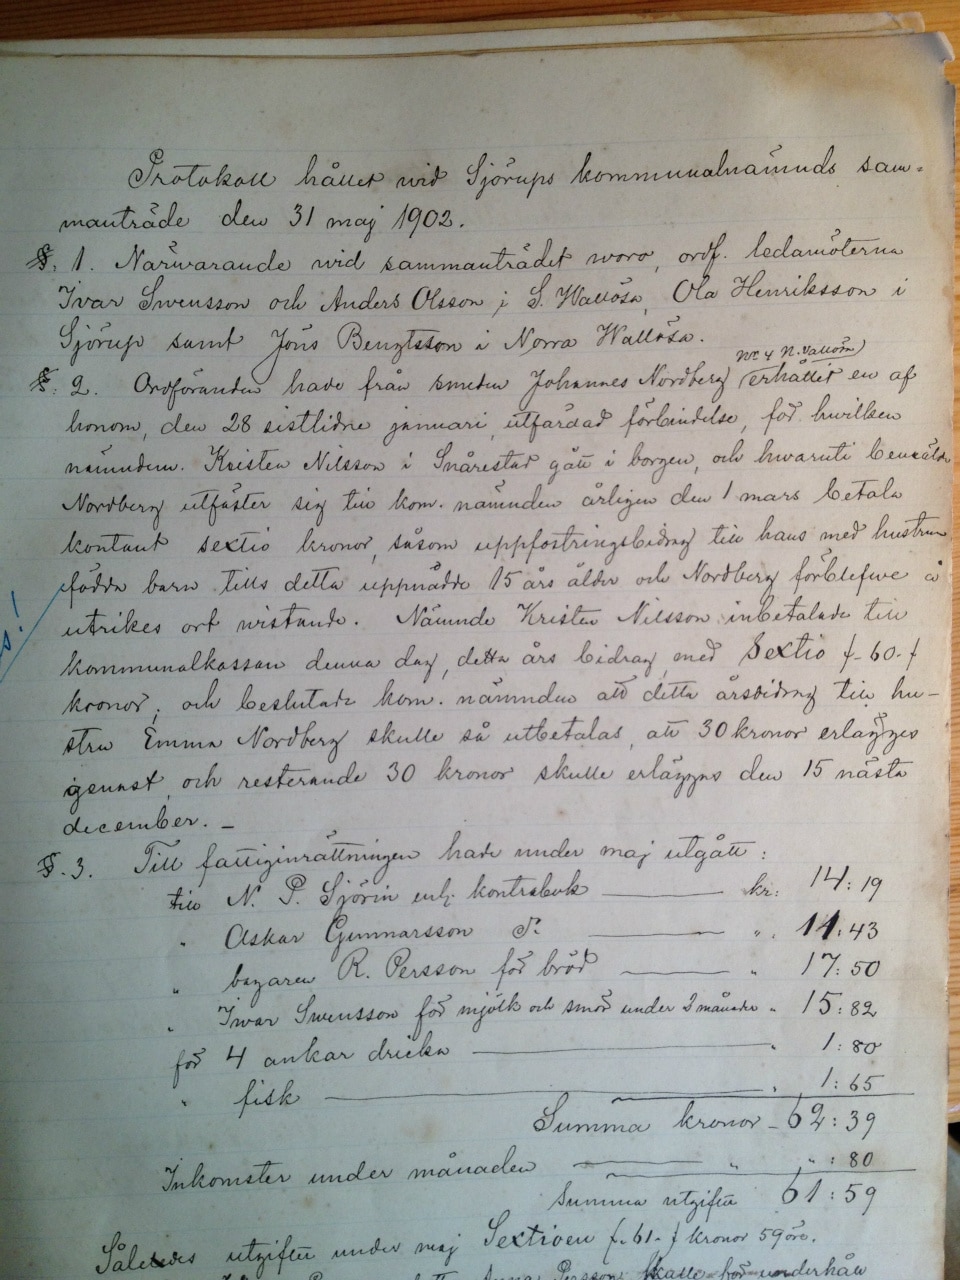 Protokoll hållet wid Sjörups kommunalnämnds sam=
manträde den 31 maj 1902.
§. 1. Närwarande wid sammanträdet woro, ordf. ledamöterna
Ivar Swensson och Anders Olsson i S. Wallösa, Ola Henriksson i
Sjörup samt Jöns Bengtsson i Norra Wallösa.
No 4 N. Vallösa)
§. 2. Ordföranden hade från smeden Johannes Nordberg erhållit en af
honom, den 28 sistlidne januari, utfärdad förbindelse, för hwilken
nämndem. Kristen Nilsson i Snårestad gått i borgen, och hwaruti bemälde
Nordberg utfäster sig till kom. nämnden årligen den 1 mars betala
kontant sextio kronor, såsom uppfostringsbidrag till hans med hustrun
födda barn tills detta uppnådde 15 års ålder och Nordberg förblefwe å
utrikes ort wistande. Nämnde Kristen Nilsson inbetalade till
kommunalkassan denna dag, detta års bidrag med Sextio f.-60.-f
kronor; och beslutade kom. nämnden att detta årsbidrag till hu-
stru Emma Nordberg skulle så utbetalas, att 30 kronor erlägges
genast, och resterande 30 kronor skulle erlägges den 15 nästa
december. –
§. 3. Till fattiginrättningen hade under maj utgått:
till N. P. Sjörin enl. kontrabok — kr: 14:19
" Oskar Gunnarsson d:o — " 11:43
" bagaren R. Persson för bröd — " 17:50
" Iwar Swensson för mjölk och smör under 2 månader " 15:82
för 4 ankar dricka — " 1:80
" fisk — " 1:65
Summa kronor – 62:39
Inkomster under månaden — " " : 80
Summa utgifter 61:59
Således utgifter under maj Sextioen f.-61.-f kronor 59 öre.
Anna Persson skulle för underhåll